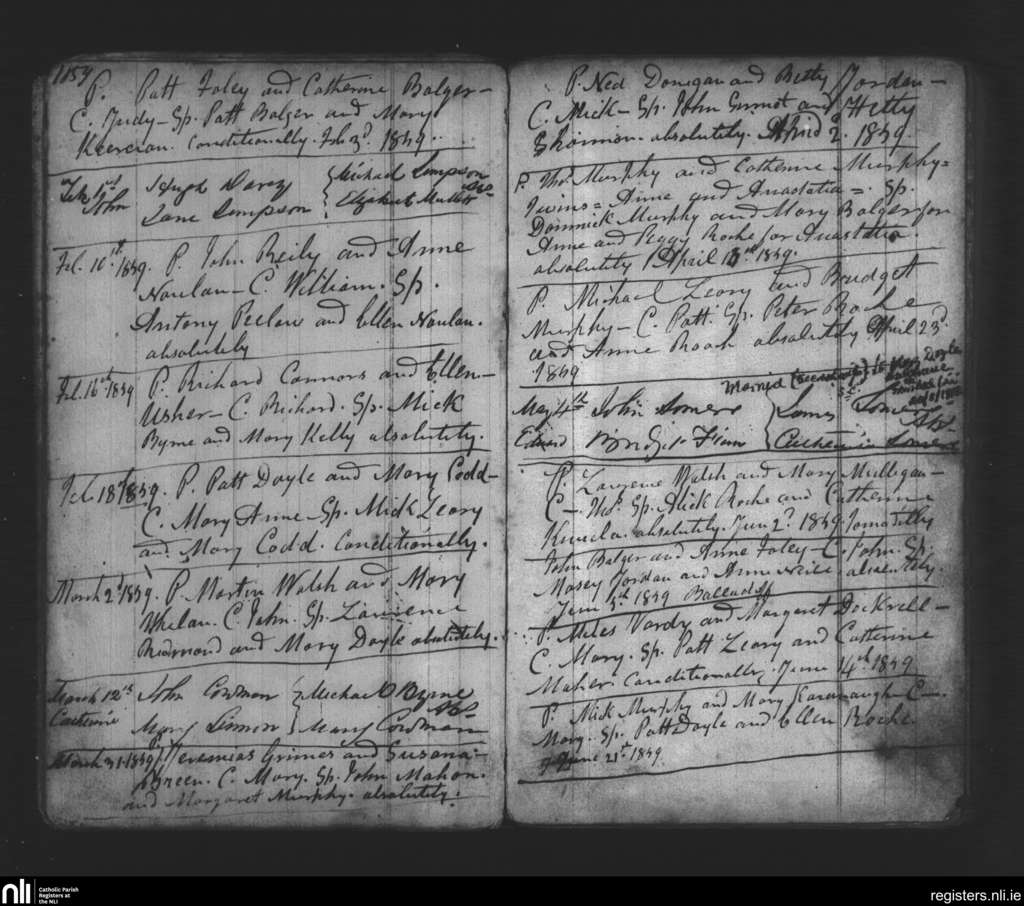 1839
P. Patt Foley and Catherine Bolger-
C. Judy- Sp. Patt Bolger and Mary
Conditionally. Feb 3d. 1839.
Feb 1st Hugh Darcy { Michael Simpson
John Jane Simpson { Elizabeth Abs-
Feb. 10th. 1839. P. John Reily and Anne
Noulan- C. William. Sp.
Antony and Ellen Noulan.
absolutely
Feb. 16th. 1839 P. Richard Connors and Ellen-
Usher- C. Richard. Sp. Mick
Byrne and Mary Kelly absolutely.
Feb. 18th 1839. P. Patt Doyle and Mary Codd-
C. Mary Anne- Sp. Mick Leary
and Mary Codd. Conditionally.
March 2d. 1839. P. Martin Walsh and Mary
Whelan. C. John. Sp. Laurence
Redmond and Mary Doyle absolutely.
March 12th John Cowman { Michael Byrne
Catherine Mary Sinnon { Mary Cowman Abs-
March 31. 1839 P. Jeremias Grimes and Susana-
Breen. C. Mary. Sp. John Mahon.
and Margaret Murphy. absolutely.
P. Ned Donegan and Betty Jordan-
C. Mick- Sp. John and Hetty
Shannon. absolutely. April 2. 1839.
P. Thos. Murphy and Catherine Murphy=
Twins= Anne and Anastatia=. Sp.
Dominick Murphy and Mary Bolger for
Anne and Peggy Roche for Anastatia.
absolutely April 1839.
P. Michael Leary and Bridgett
Murphy- C. Patt. Sp. Peter Roche
and Anne Roach absolutely April 23d.
1839
Married to Mary Doyle
May 4th John Somers { James Somers
Edward Bridget { Catherine Somers Abs-
P. Laurence Walsh and Mary Mulligan-
C-. Thos. Sp. Mick Roche and Catherine
absolutely. Jun 2d. 1839.
John Bolger and Anne Foley- C. John. Sp.
Mosey Jordan and Anne
June 1839
P. Miles Vardy and Margaret Dockrell-
C. Mary. Sp. Patt Leary and Catherine
Maher. Conditionally. June 14th. 1839
P. Mick Murphy and Mary Kavanaugh C-.
Mary. Sp. Patt Doyle and Ellen Roche.
June 21st. 1839
nli Catholic Parish
Registers at
the NLI
registers.nli.ie